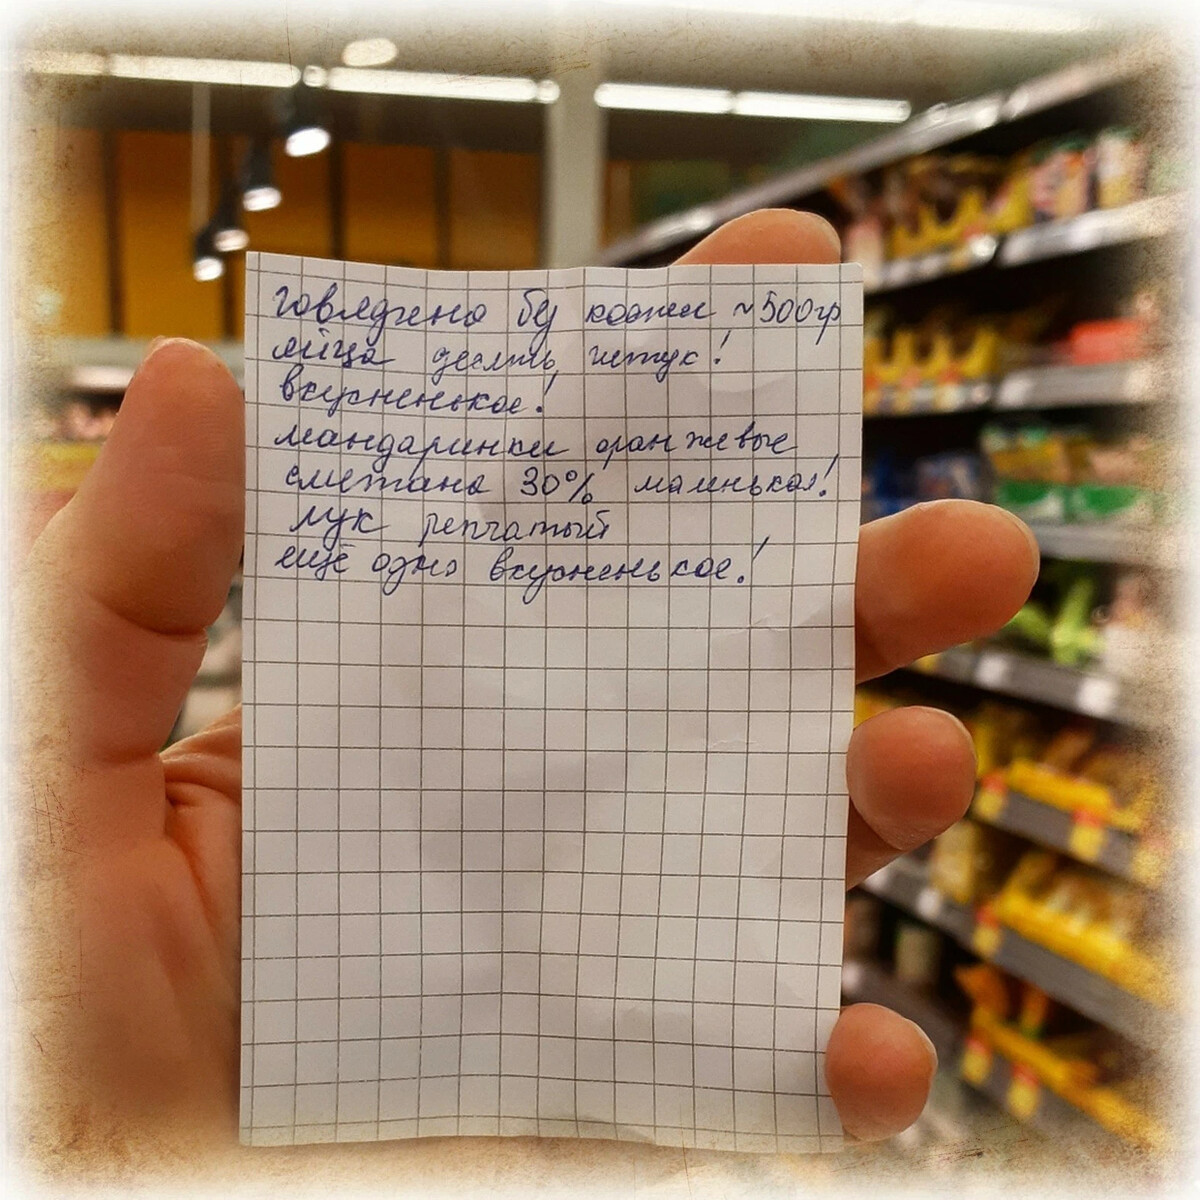 говядина без кости ~500гр
яйца десять штук!
вкусненькое!
мандаринки оранжевые
сметана 30% маленькая!
лук репчатый
ещё одно вкусненькое!